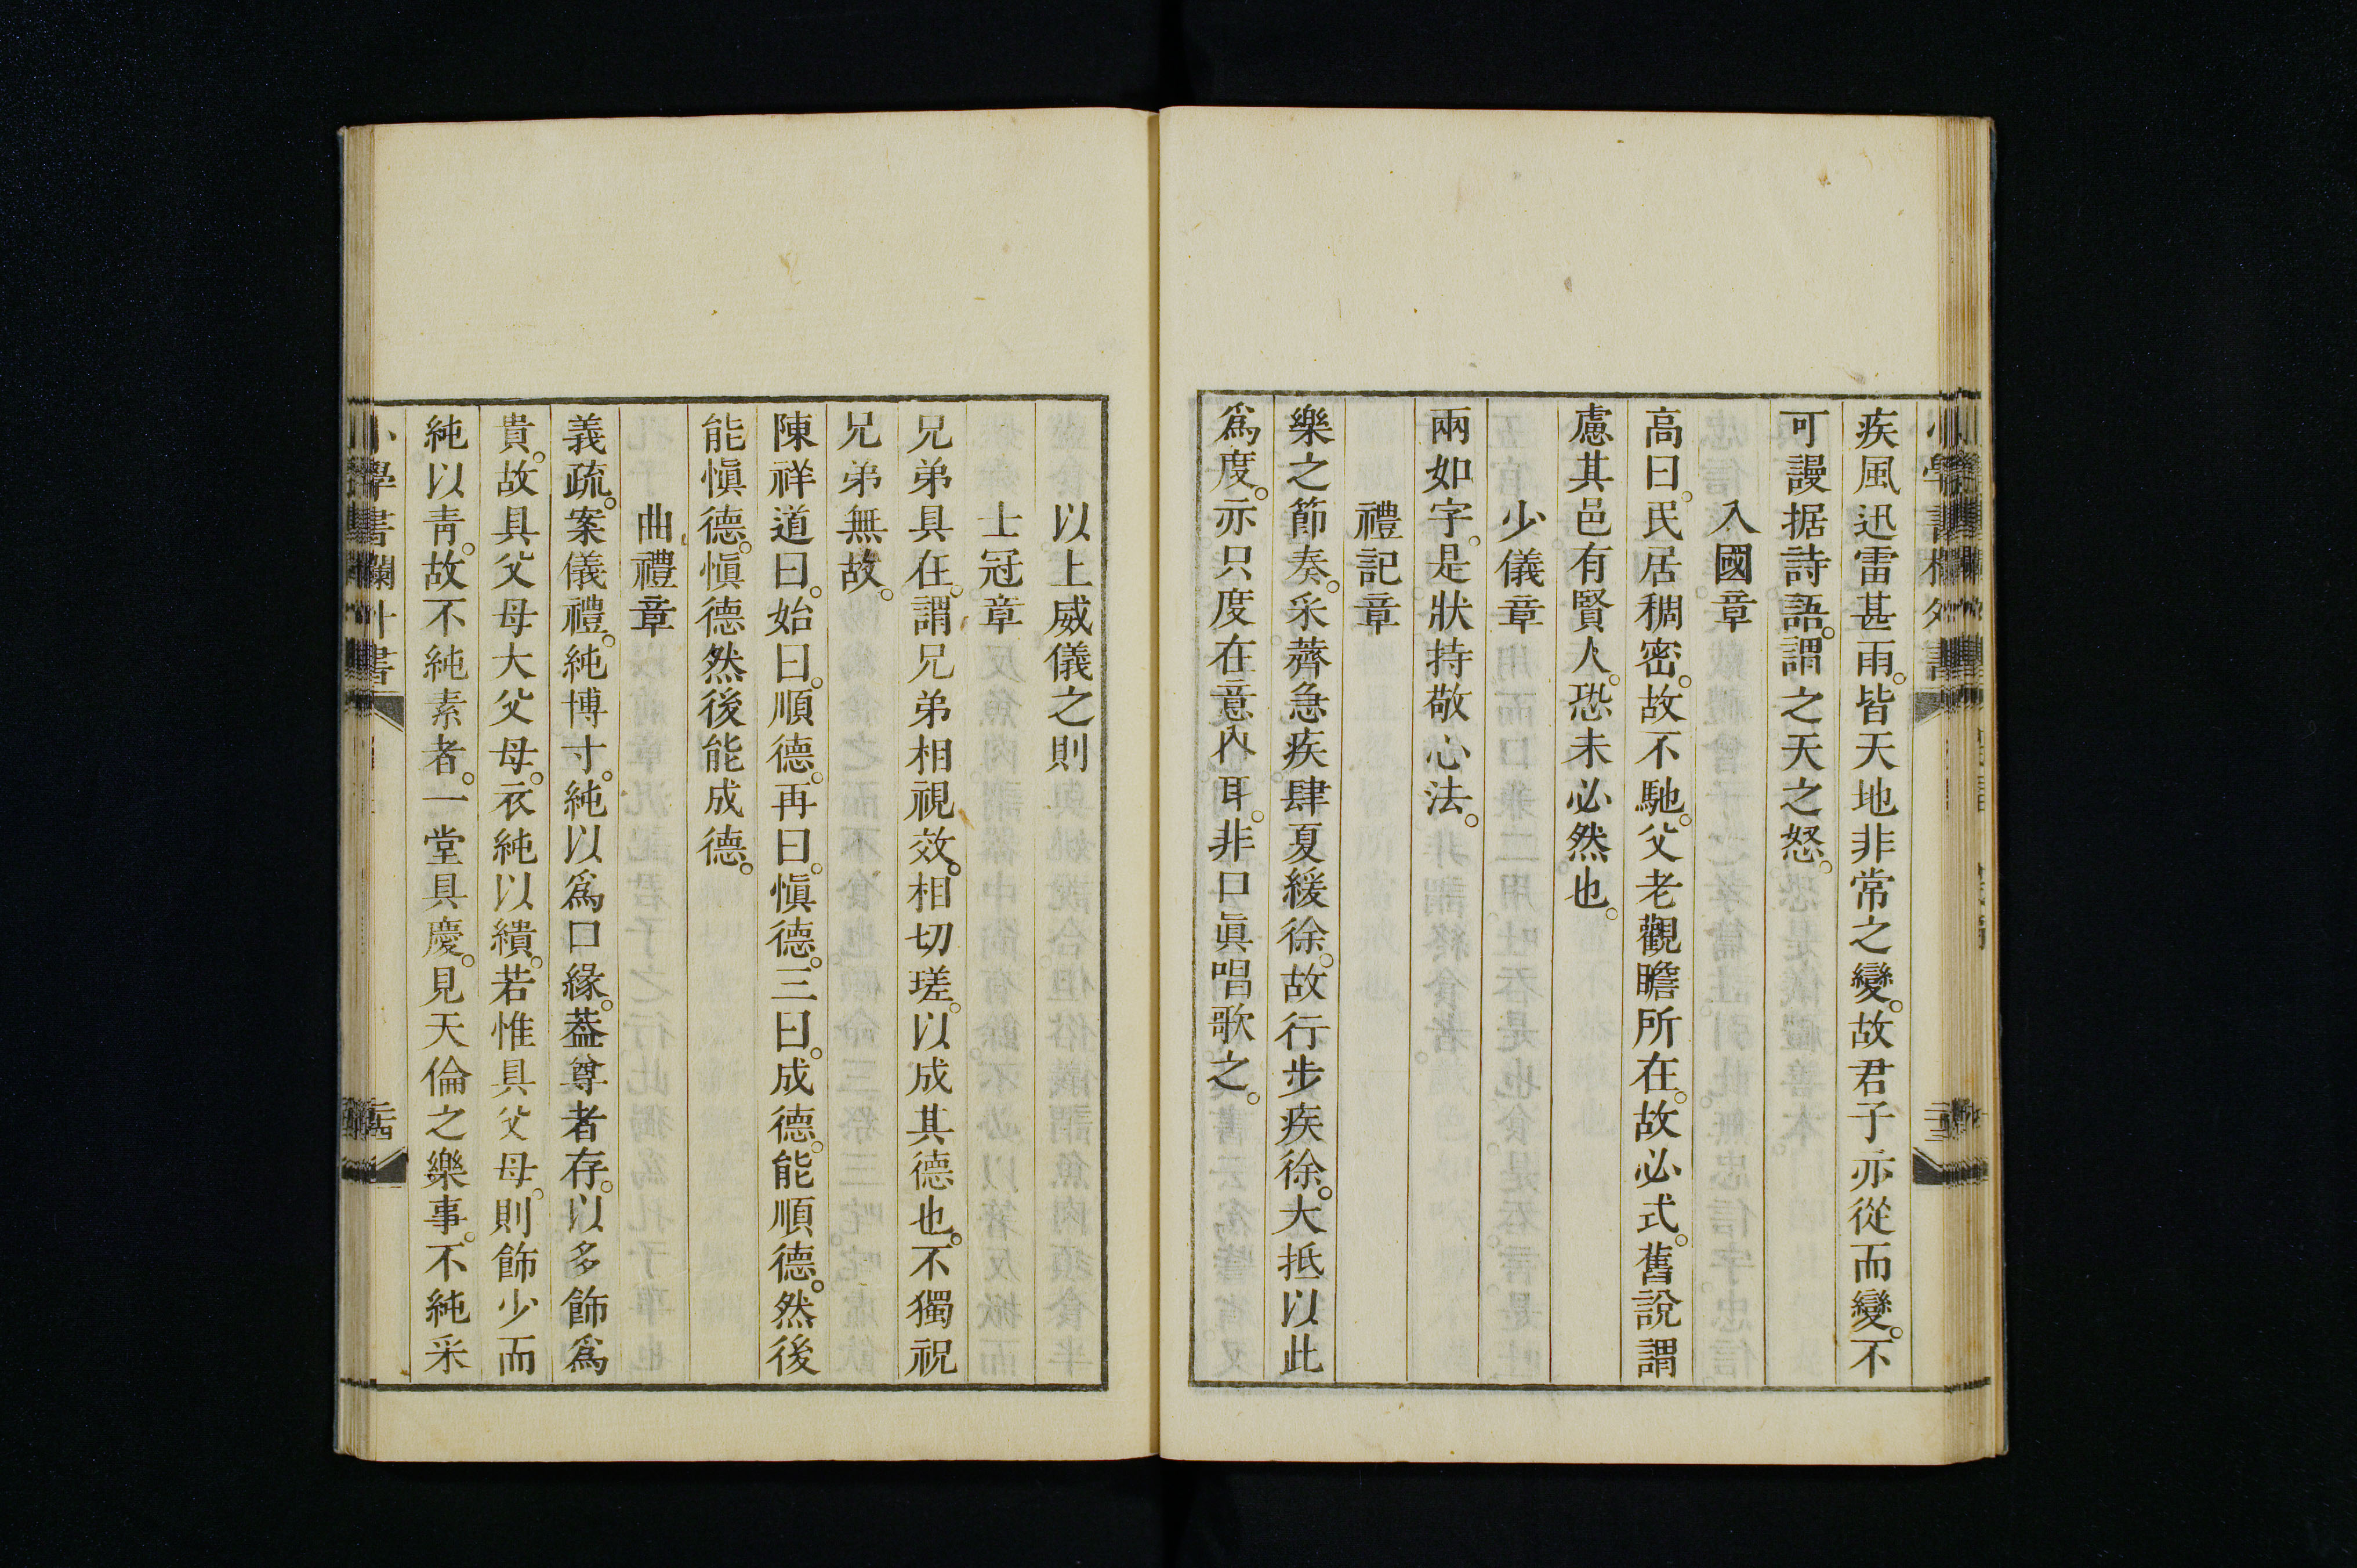 疾風迅雷甚雨。皆天地非常之變。故君子亦從而變。不
可謾据詩語。謂之天之怒。
入國章
高曰。民居稠密。故不馳。父老觀瞻所在。故必式。舊說謂
慮其邑有賢人。恐未必然也。
少儀章
兩如字。是狀持敬心法。
禮記章
樂之節奏。采薺急疾肆夏緩徐。故行步疾徐。大抵以此
爲度。亦只度在意內耳。非口眞唱歌之。
以上威儀之則
士冠章
兄弟具在。謂兄弟相視效。相切瑳。以成其德也。不獨祝
兄弟無故。
陳祥道曰。始曰。順德。再曰。愼德。三曰。成德。能順德。然後
能愼德。愼德然後能成德。
曲禮章
義疏。案儀禮。純博寸。純以爲口緣。葢尊者存。以多飾爲
貴。故具父母大父母。衣純以繢。若惟具父母。則飾少而
純以靑。故不純素者。一堂具慶。見天倫之樂事。不純采
小學書欄外書
二十四